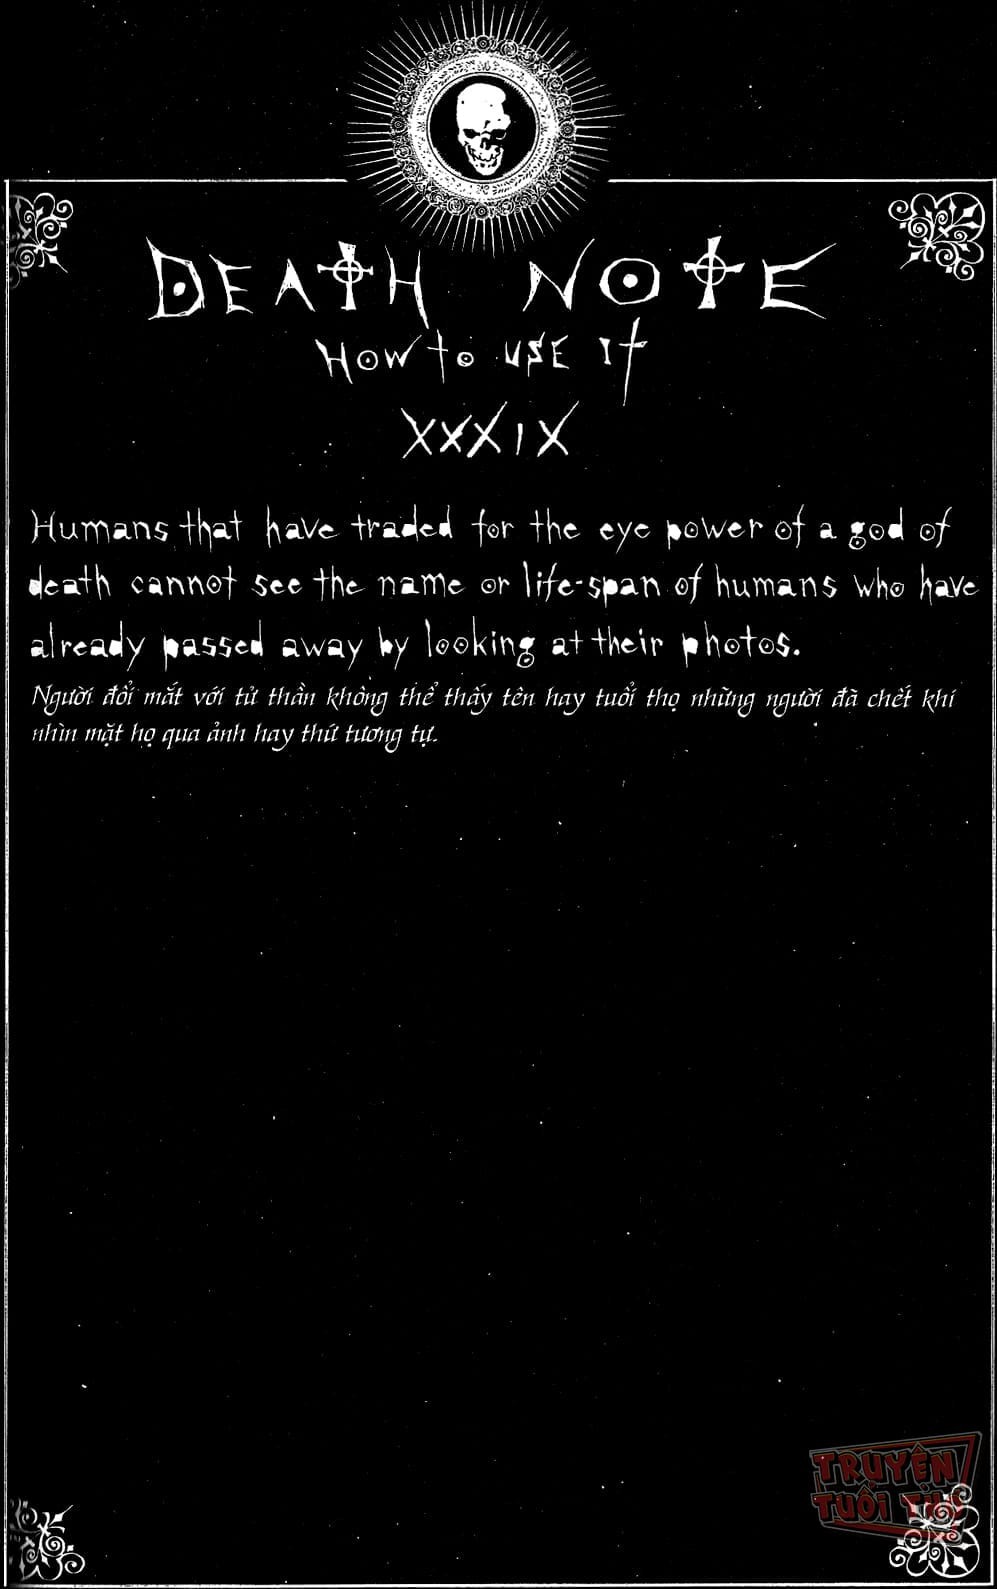 DEATH NOTE
HOW to USE It
XXXIX
Humans that have traded for the eye power of a god of
death cannot see the name or life-span of humans who have
already passed away by looking at their photos.
Người đổi mắt với tử thần không thể thấy tên hay tuổi thọ những người đã chết khi
nhìn mặt họ qua ảnh hay thứ tương tự.
TRUYỆN
TUỔI THƠ